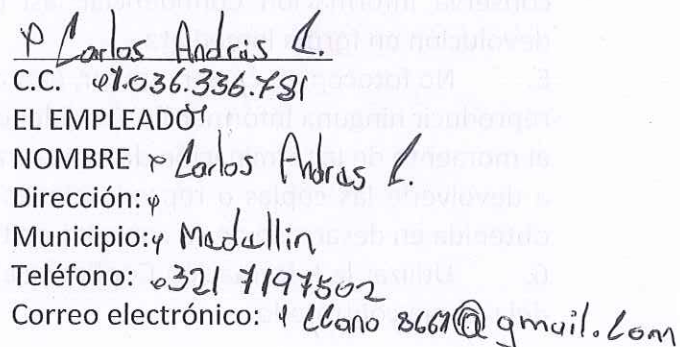 Carlos Andrés L.
C.C. 1.036.336.781
EL EMPLEADO
NOMBRE Carlos Andres L.
Dirección:
Municipio: Medallin
Teléfono: 321 7197502
Correo electrónico: Llano 8667@gmail.com